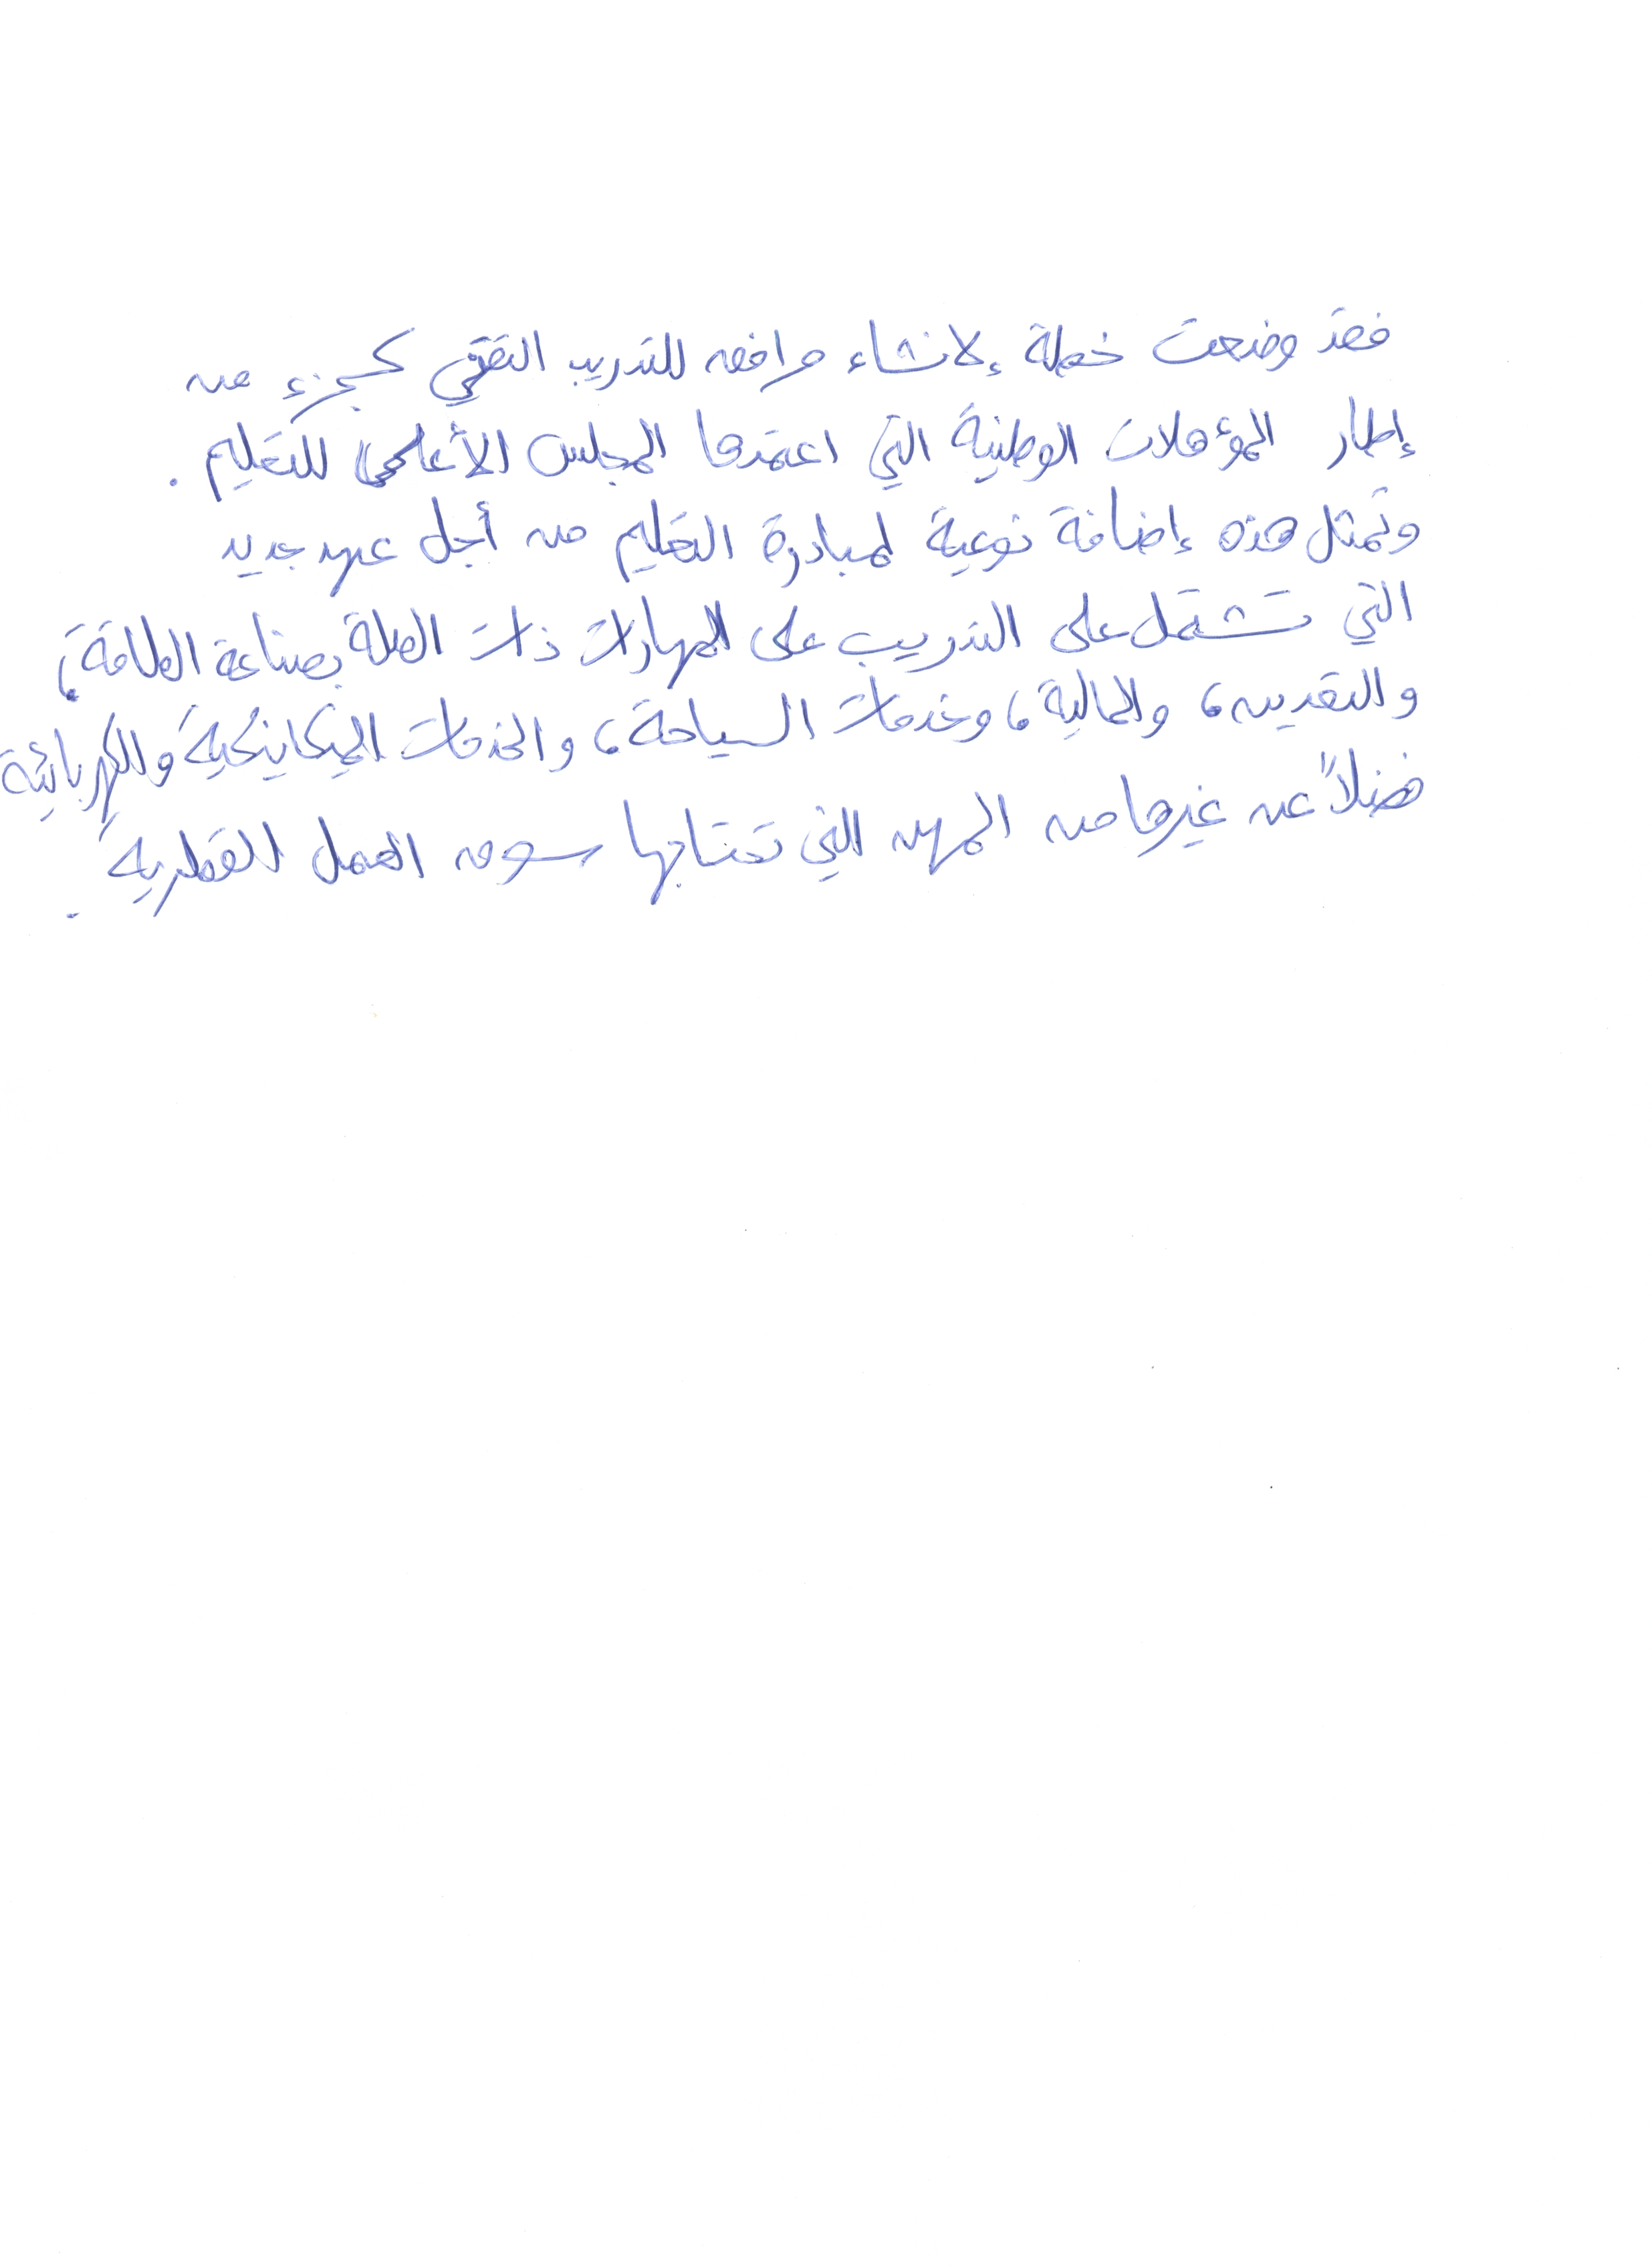 فقد وضعت خطة لإنشاء مرافق للتدريب التقني كجزء من
إطار المؤهلات الوطنية التي اعتمدها المجلس الأعلى للتعليم .
وتمثل هذه إضافة نوعية لمبادرة التعليم من أجل عهد جديد
التي تشتمل على التدريب على المهارات ذات الصلة بصناعة الطاقة،
والتعدين، والمالية، وخدمات السياحة، والخدمات الميكانيكية والكهربائية
فضلاً عن غيرها من المهن التي تحتاجها سوق العمل القطرية .